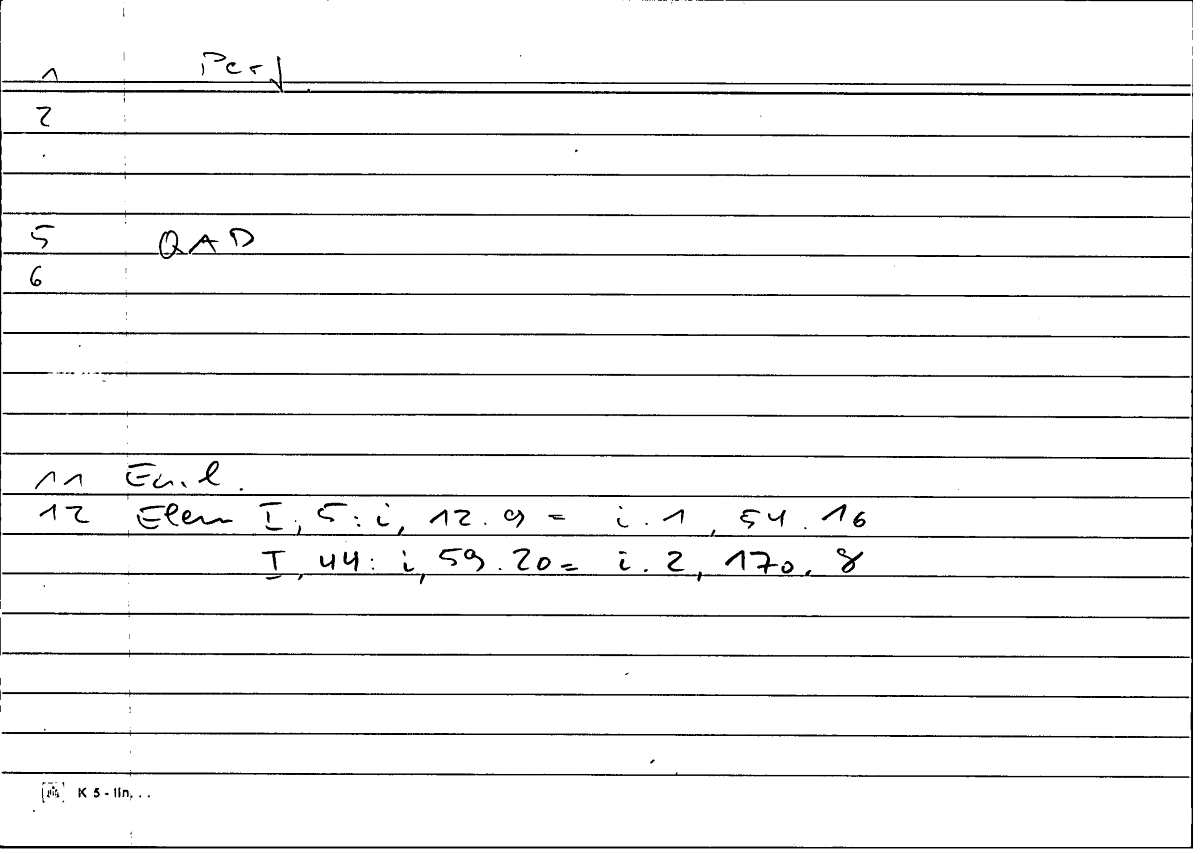 1 Perf
2
5 QAD
6
11 Eucl.
12 Elem I, 5: i, 12.9 = i.1, 54.16
I, 44: i, 59.20 = i.2, 170.8
K 5 - lin.